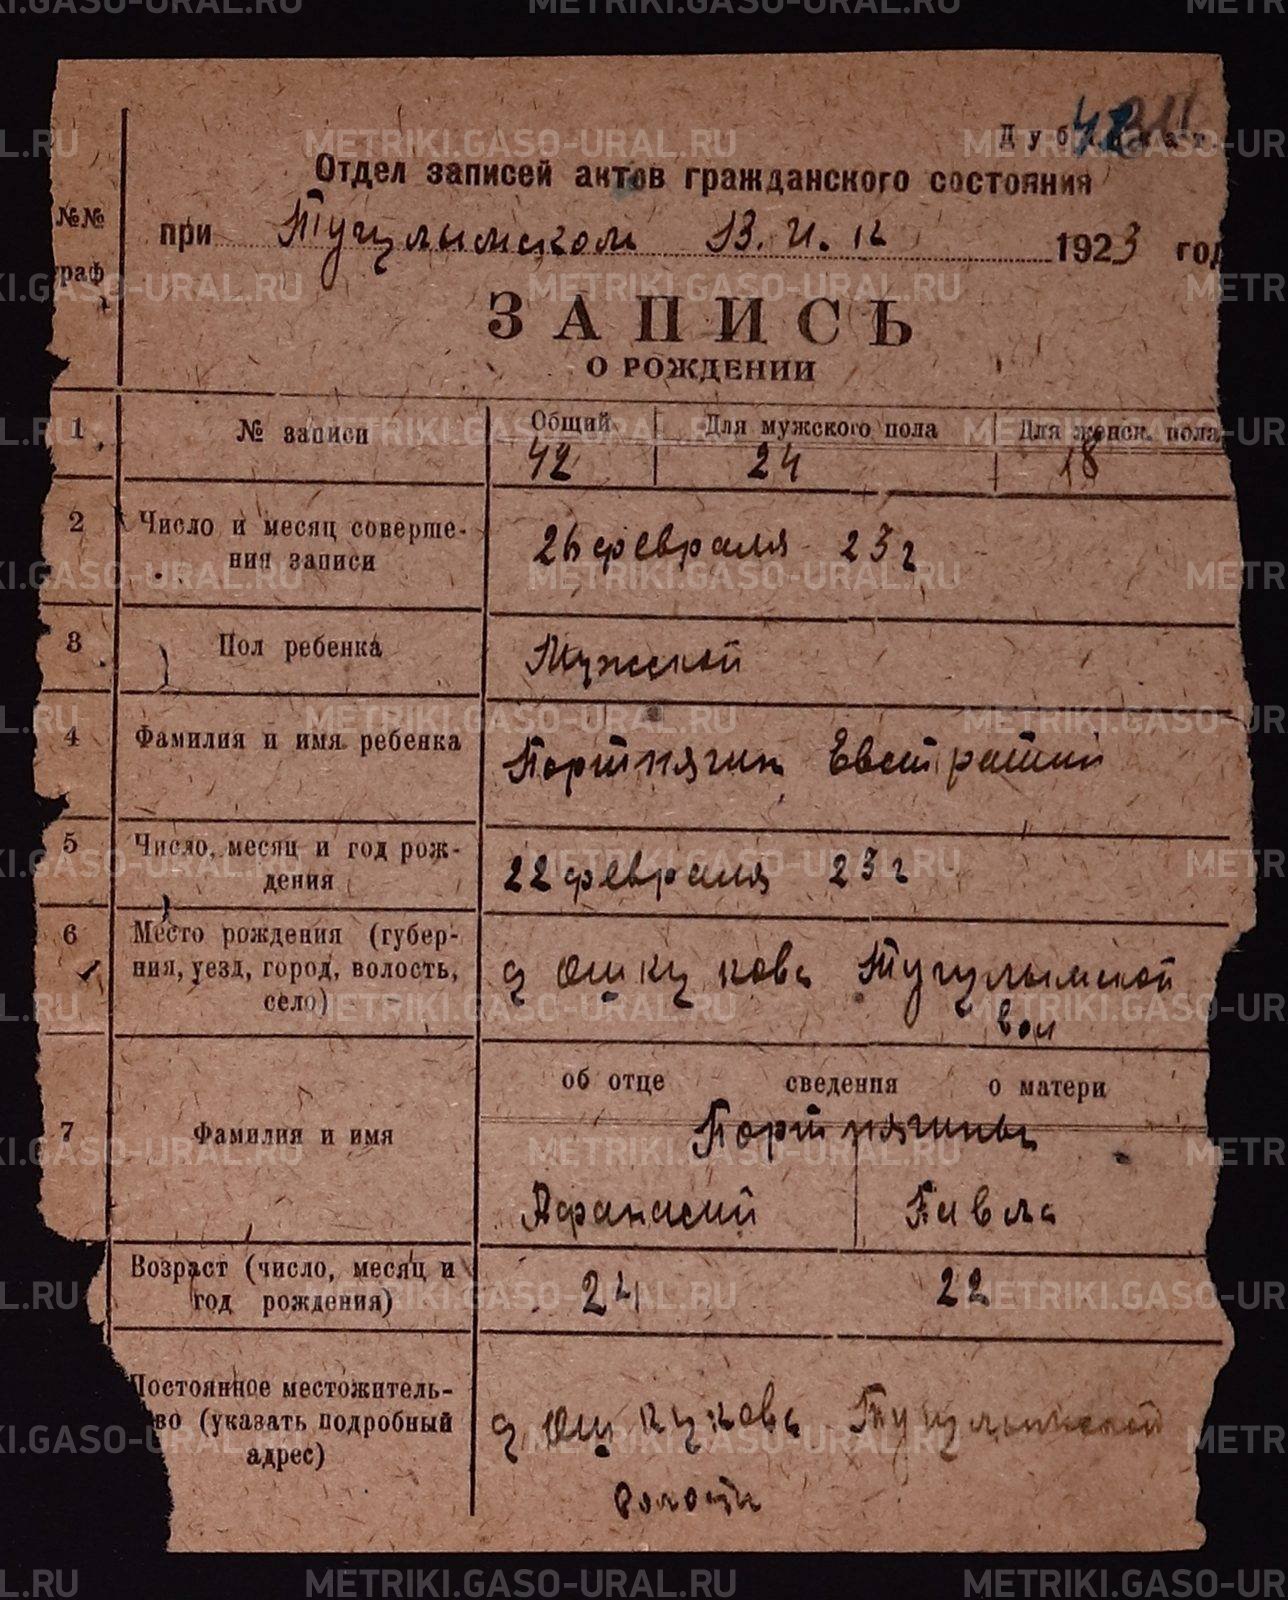 Отдел записей актов гражданского состояния
при Тугулымском В. И. К 1923 год
№№
граф
ЗАПИСЬ
О РОЖДЕНИИ
1 № записи Общий Для мужского пола Для женск. пола
42 24 18
2 Число и месяц соверше-
ния записи
26 февраля 23 г
3 Пол ребенка Мужской
4 Фамилия и имя ребенка Портнягин Евстратий
5 Число, месяц и год рож-
дения
22 февраля 23 г
6 Место рождения (губер-
ния, уезд, город, волость,
село)
д Юшкукова Тугулымской
вол
об отце сведения о матери
7 Фамилия и имя Портнягины
Афанасий Павла
Возраст (число, месяц и
год рождения)
24 22
Постоянное местожитель-
во (указать подробный
адрес)
д Юшкукова Тугулымской
волости
METRIKI.GASO-URAL.RU